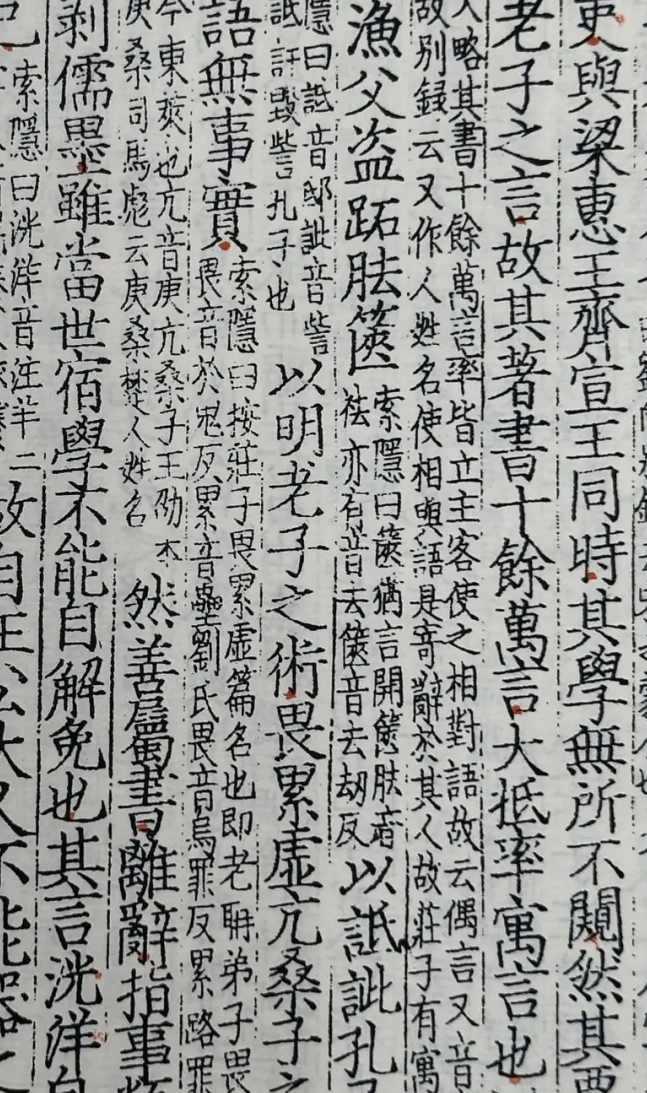 吏與梁惠王齊宣王同時其學無所不闚然其要
老子之言故其著書十餘萬言大抵率寓言也
人略其書十餘萬言率皆立主客使之相對語故云偶言又音
故別錄云又作人姓名使相與語是寄辭於其人故莊子有寓
漁父盜跖胠篋
索隱曰篋猶言開篋胠音
祛亦有音去篋音去劫反
以詆訿孔子
隱曰詆音邸訿音訾
詆訐毀訾孔子也
以明老子之術畏累虛亢桑子之
語無事實
索隱曰按莊子畏累虛篇名也即老聃弟子畏
畏音於鬼反累音壘劉氏畏音烏罪反累路罪
今東萊也亢音庚亢桑子王劭本
庚桑司馬彪云庚桑楚人姓名
然善屬書離辭指事類
剽儒墨雖當世宿學不能自解免也其言洸洋自
索隱曰洸洋音汪羊二
故自王公大人不能器之